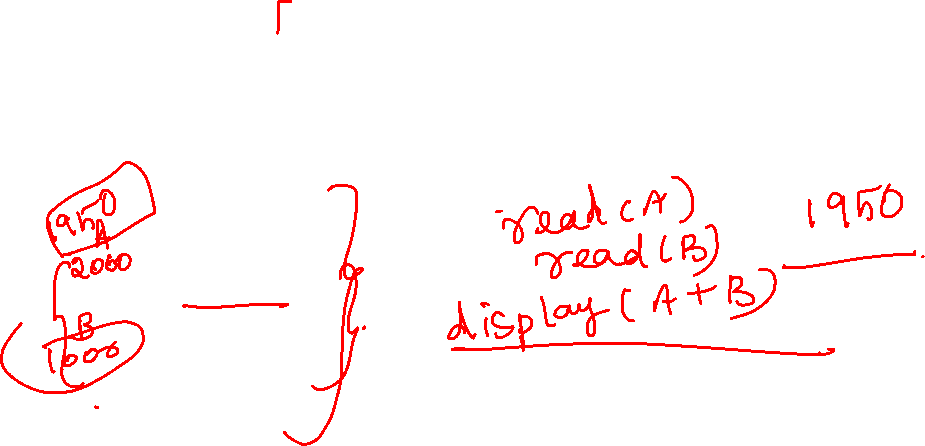 950
A
2000
B
1000
read(A)
read(B)
display(A+B)
1950